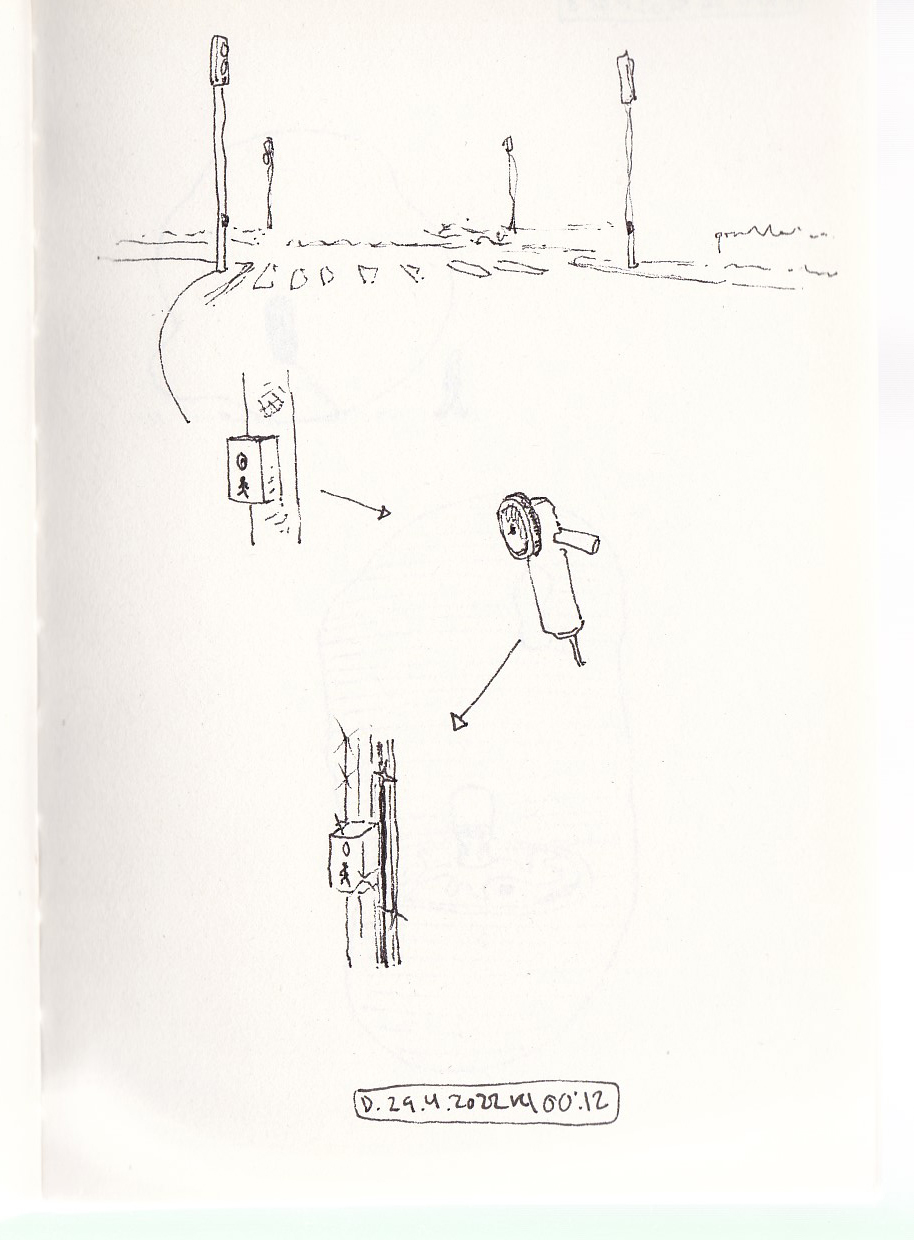 D. 29.4.2022 kl 00:12